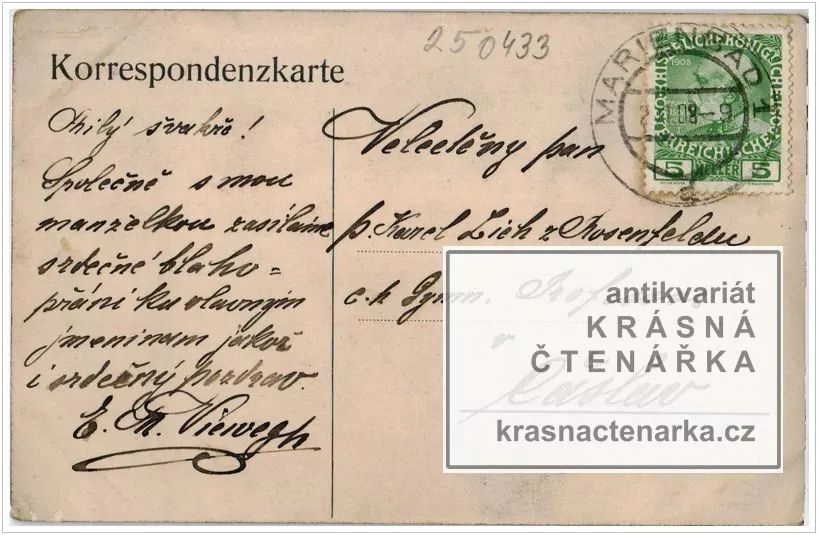 250433
Korrespondenzkarte
MARIENBAD 1
1908
5 HELLER 5
Milý švakře!
Společně s mou
manželkou zasíláme
srdečné blaho=
přání ku slavným
jmeninám jakož
i srdečný pozdrav.
E. M. Viewegh
Velectěný pan
p. Karel Lich z Rosenfeldu
c. k. Gymn. Profesor
v
Čáslav
antikvariát
KRÁSNÁ
ČTENÁŘKA
krasnactenarka.cz